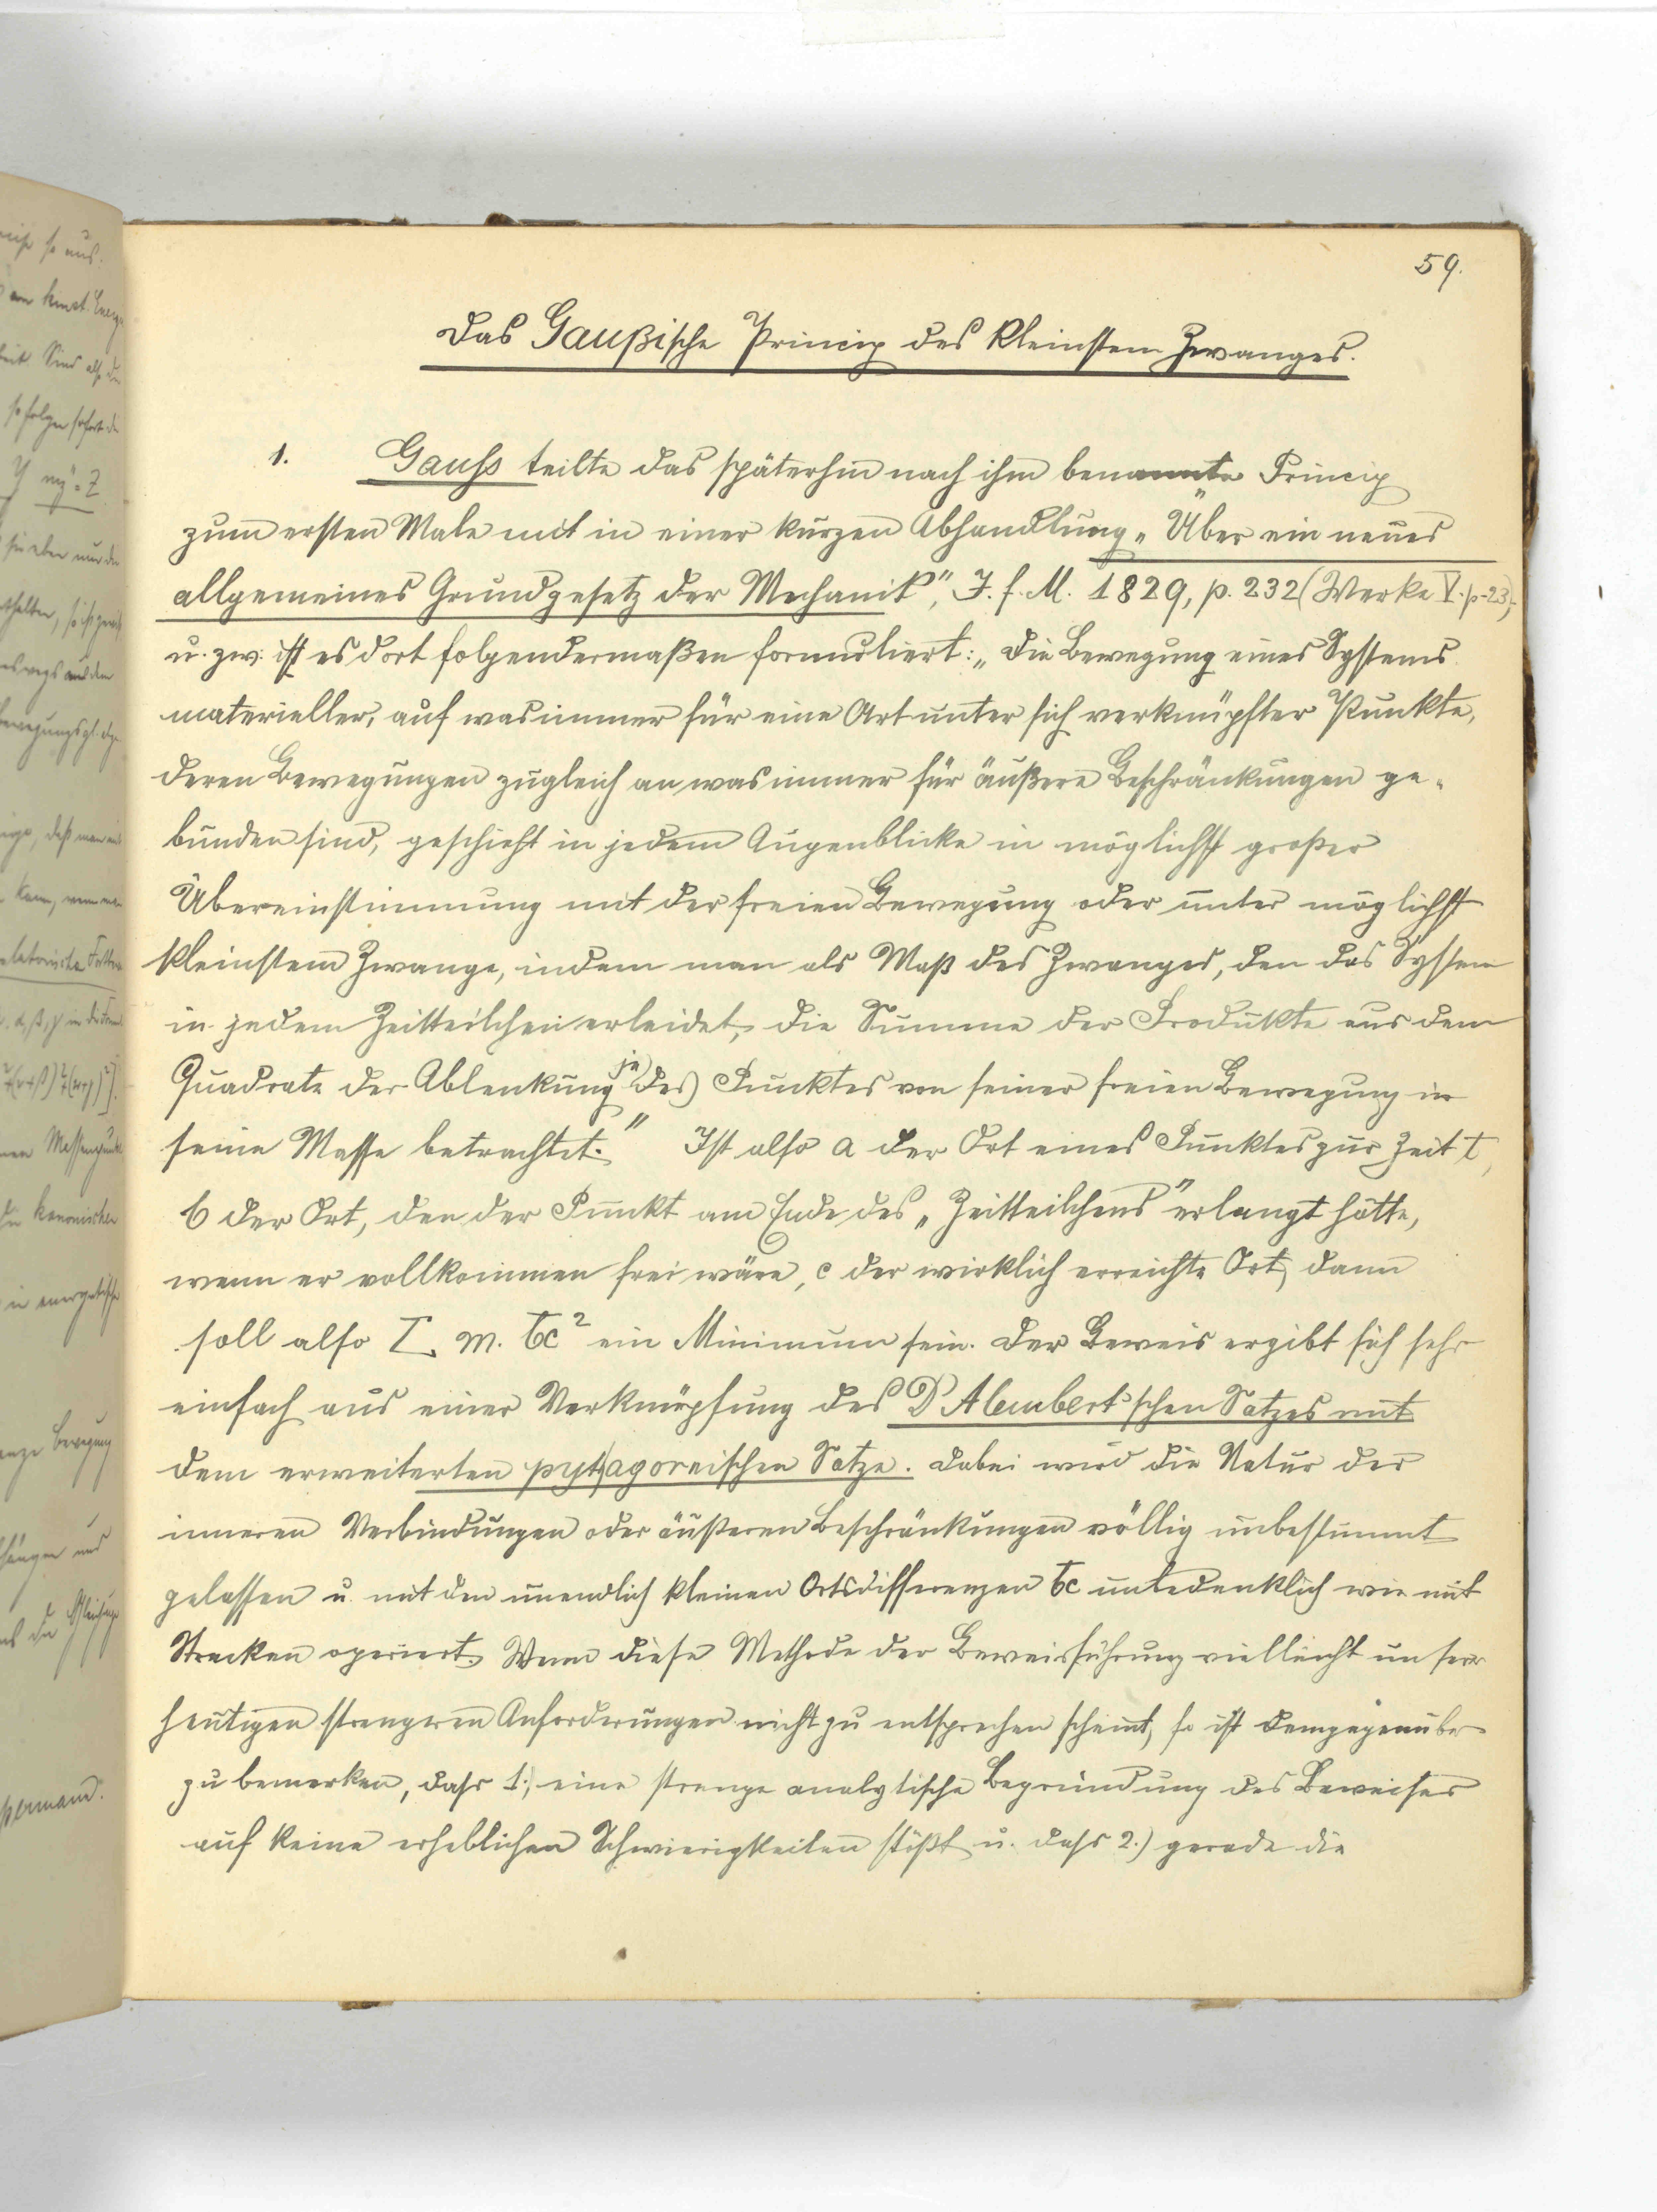 59.
Das Gaußische Princip des kleinsten Zwanges.
1. Gauss teilte das späterhin nach ihm benannte Princip
zum ersten Male mit in einer kurzen Abhandlung „Über ein neues
allgemeines Grundgesetz der Mechanik“, J. f. M. 1829, p. 232 (Werke V. p-23),
u. zw. ist es dort folgendermaßen formuliert: „Die Bewegung eines Systems
materieller, auf was immer für eine Art unter sich verknüpfter Punkte,
deren Bewegungen zugleich an was immer für äußere Beschränkungen ge-
bunden sind, geschieht in jedem Augenblicke in möglichst großer
Übereinstimmung mit der freien Bewegung oder unter möglichst
kleinstem Zwange, indem man als Maß des Zwanges, den das System
in jedem Zeitteilchen erleidet, die Summe der Produkte aus dem
Quadrate der Ablenkung jedes Punktes von seiner freien Bewegung in
seine Masse betrachtet.“ Ist also a der Ort eines Punktes zur Zeit t,
b der Ort, den der Punkt am Ende des „Zeitteilchens“ erlangt hätte,
wenn er vollkommen frei wäre, c der wirklich erreichte Ort, dann
soll also Σ m. bc² ein Minimum sein. Der Beweis ergibt sich sehr
einfach aus einer Verknüpfung des D'Alembert'schen Satzes mit
dem erweiterten pythagoreischen Satze. Dabei wird die Natur der
inneren Verbindungen oder äußeren Beschränkungen völlig unbestimmt
gelassen u. mit den unendlich kleinen Ortsdifferenzen bc unbedenklich wie mit
Strecken operiert. Wenn diese Methode der Beweisführung vielleicht unsern
heutigen strengeren Anforderungen nicht zu entsprechen scheint, so ist demgegenüber
zu bemerken, dass 1.) eine strenge analytische Begründung des Beweises
auf keine erheblichen Schwierigkeiten stößt u. dass 2.) gerade die